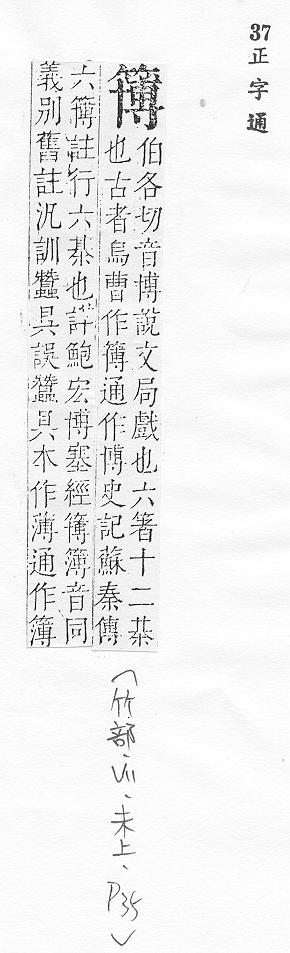 37正字通
簿
伯各切音博說文局戲也六箸十二棊
也古者烏曹作簿通作博史記蘇秦傳
六簿註行六棊也詳鮑宏博塞經簿簿音同
義別舊註汎訓蠶具誤蠶具本作薄通作簿
(竹部、VII、未上、P35)